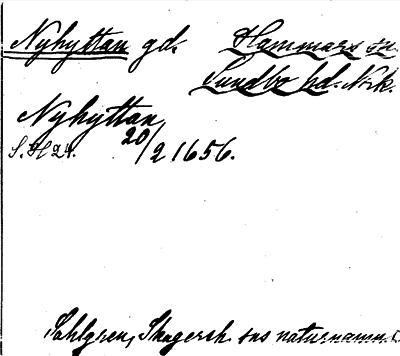 Nyhyttan gd. Hammars sn.
Sundbo hd. Nrk.
Nyhyttan,
S. H 24. 20/2 1656.
Sahlgren, Skagersh. sns naturnamn.